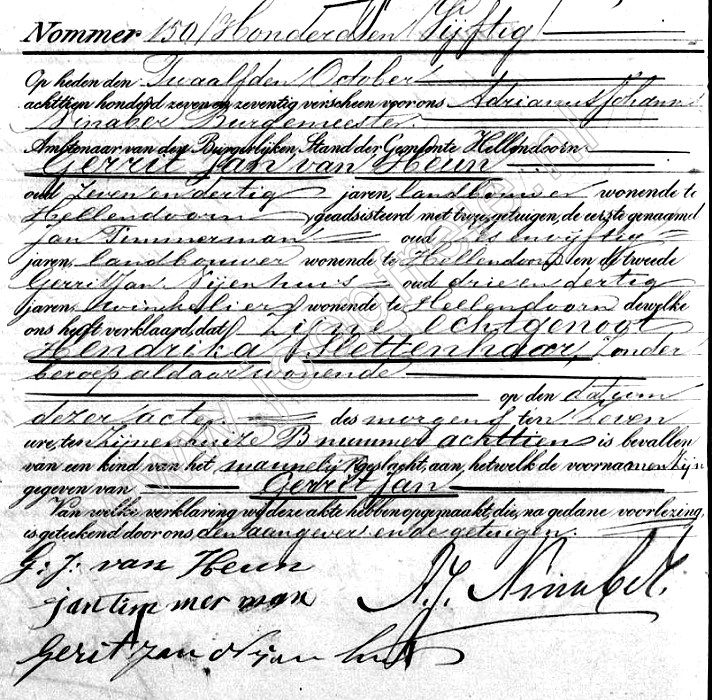 Nommer 150/Honderd en Vijftig
Op heden den Twaalfden October
achttien honderd zeven en zeventig verscheen voor ons Adrianus Johann
Burgemeester
Amtenaar van den Burgerlijken Stand der Gemeente Hellendoorn
Gerrit Jan van Heun
oud Zeven en dertig jaren, landbouwer wonende te
Hellendoorn geadsisteerd met twee getuigen, de eerste genaamd
Jan Timmerman oud zes en vijftig
jaren, landbouwer wonende te Hellendoorn en de tweede
Gerrit Jan Nijenhuis oud drie en dertig
jaren, Winkelier wonende te Hellendoorn dewelke
ons heeft verklaard, dat Zijne echtgenoot
Hendrika Flettenhaar, Zonder
beroep aldaar wonende
op den datum
dezer acte des morgens ten Zeven
ure, ten Zijnenhuize B nummer achttien is bevallen
van een kind van het mannelijk geslacht, aan hetwelk de voornamen Zijn
gegeven van Gerrit Jan
Van welke verklaring wij deze akte hebben opgemaakt, die, na gedane voorlezing,
is geteekend door ons, den aangever en de getuigen.
G: J: van Heun
jan timmerman A.J.
Gerit Jan
www.
.nl